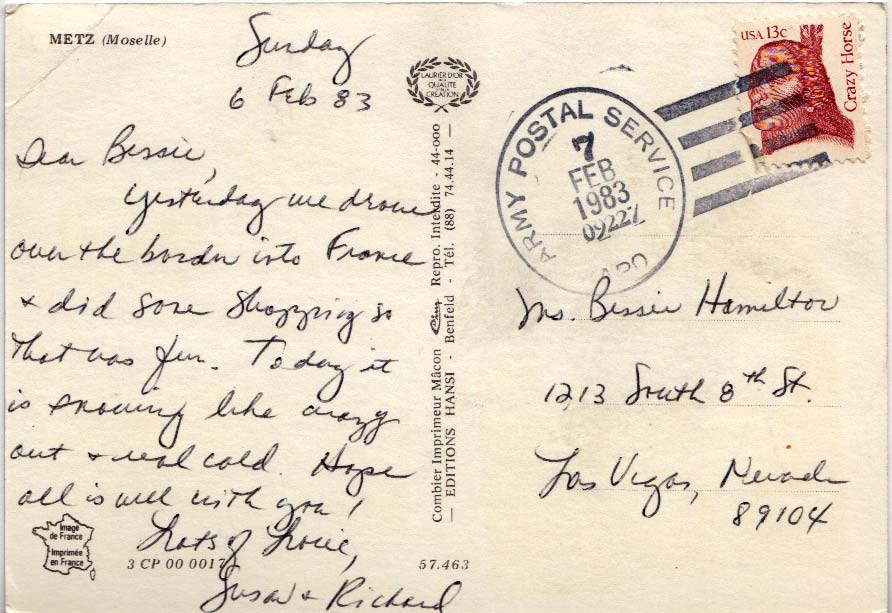 METZ (Moselle)
Sunday
6 Feb 83
Dear Bessie,
Yesterday we drove
over the border into France
+ did some shopping so
that was fun. Today it
is snowing like crazy
out + real cold. Hope
all is well with you!
Lots of Love,
Susan + Richard
Image
de France
Imprimée
en France
3 CP 00 0017
57.463
LAURIER D'OR
DE LA
QUALITÉ
CRÉATION
Combier Imprimeur Mâcon Cim Repro. Interdite - 44-000
— EDITIONS HANSI - Benfeld - Tél. (88) 74.44.14 —
ARMY POSTAL SERVICE
7
FEB
1983
0922Z
APO
USA 13c
Crazy Horse
Ms. Bessie Hamilton
1213 South 8th St.
Las Vegas, Nevada
89104